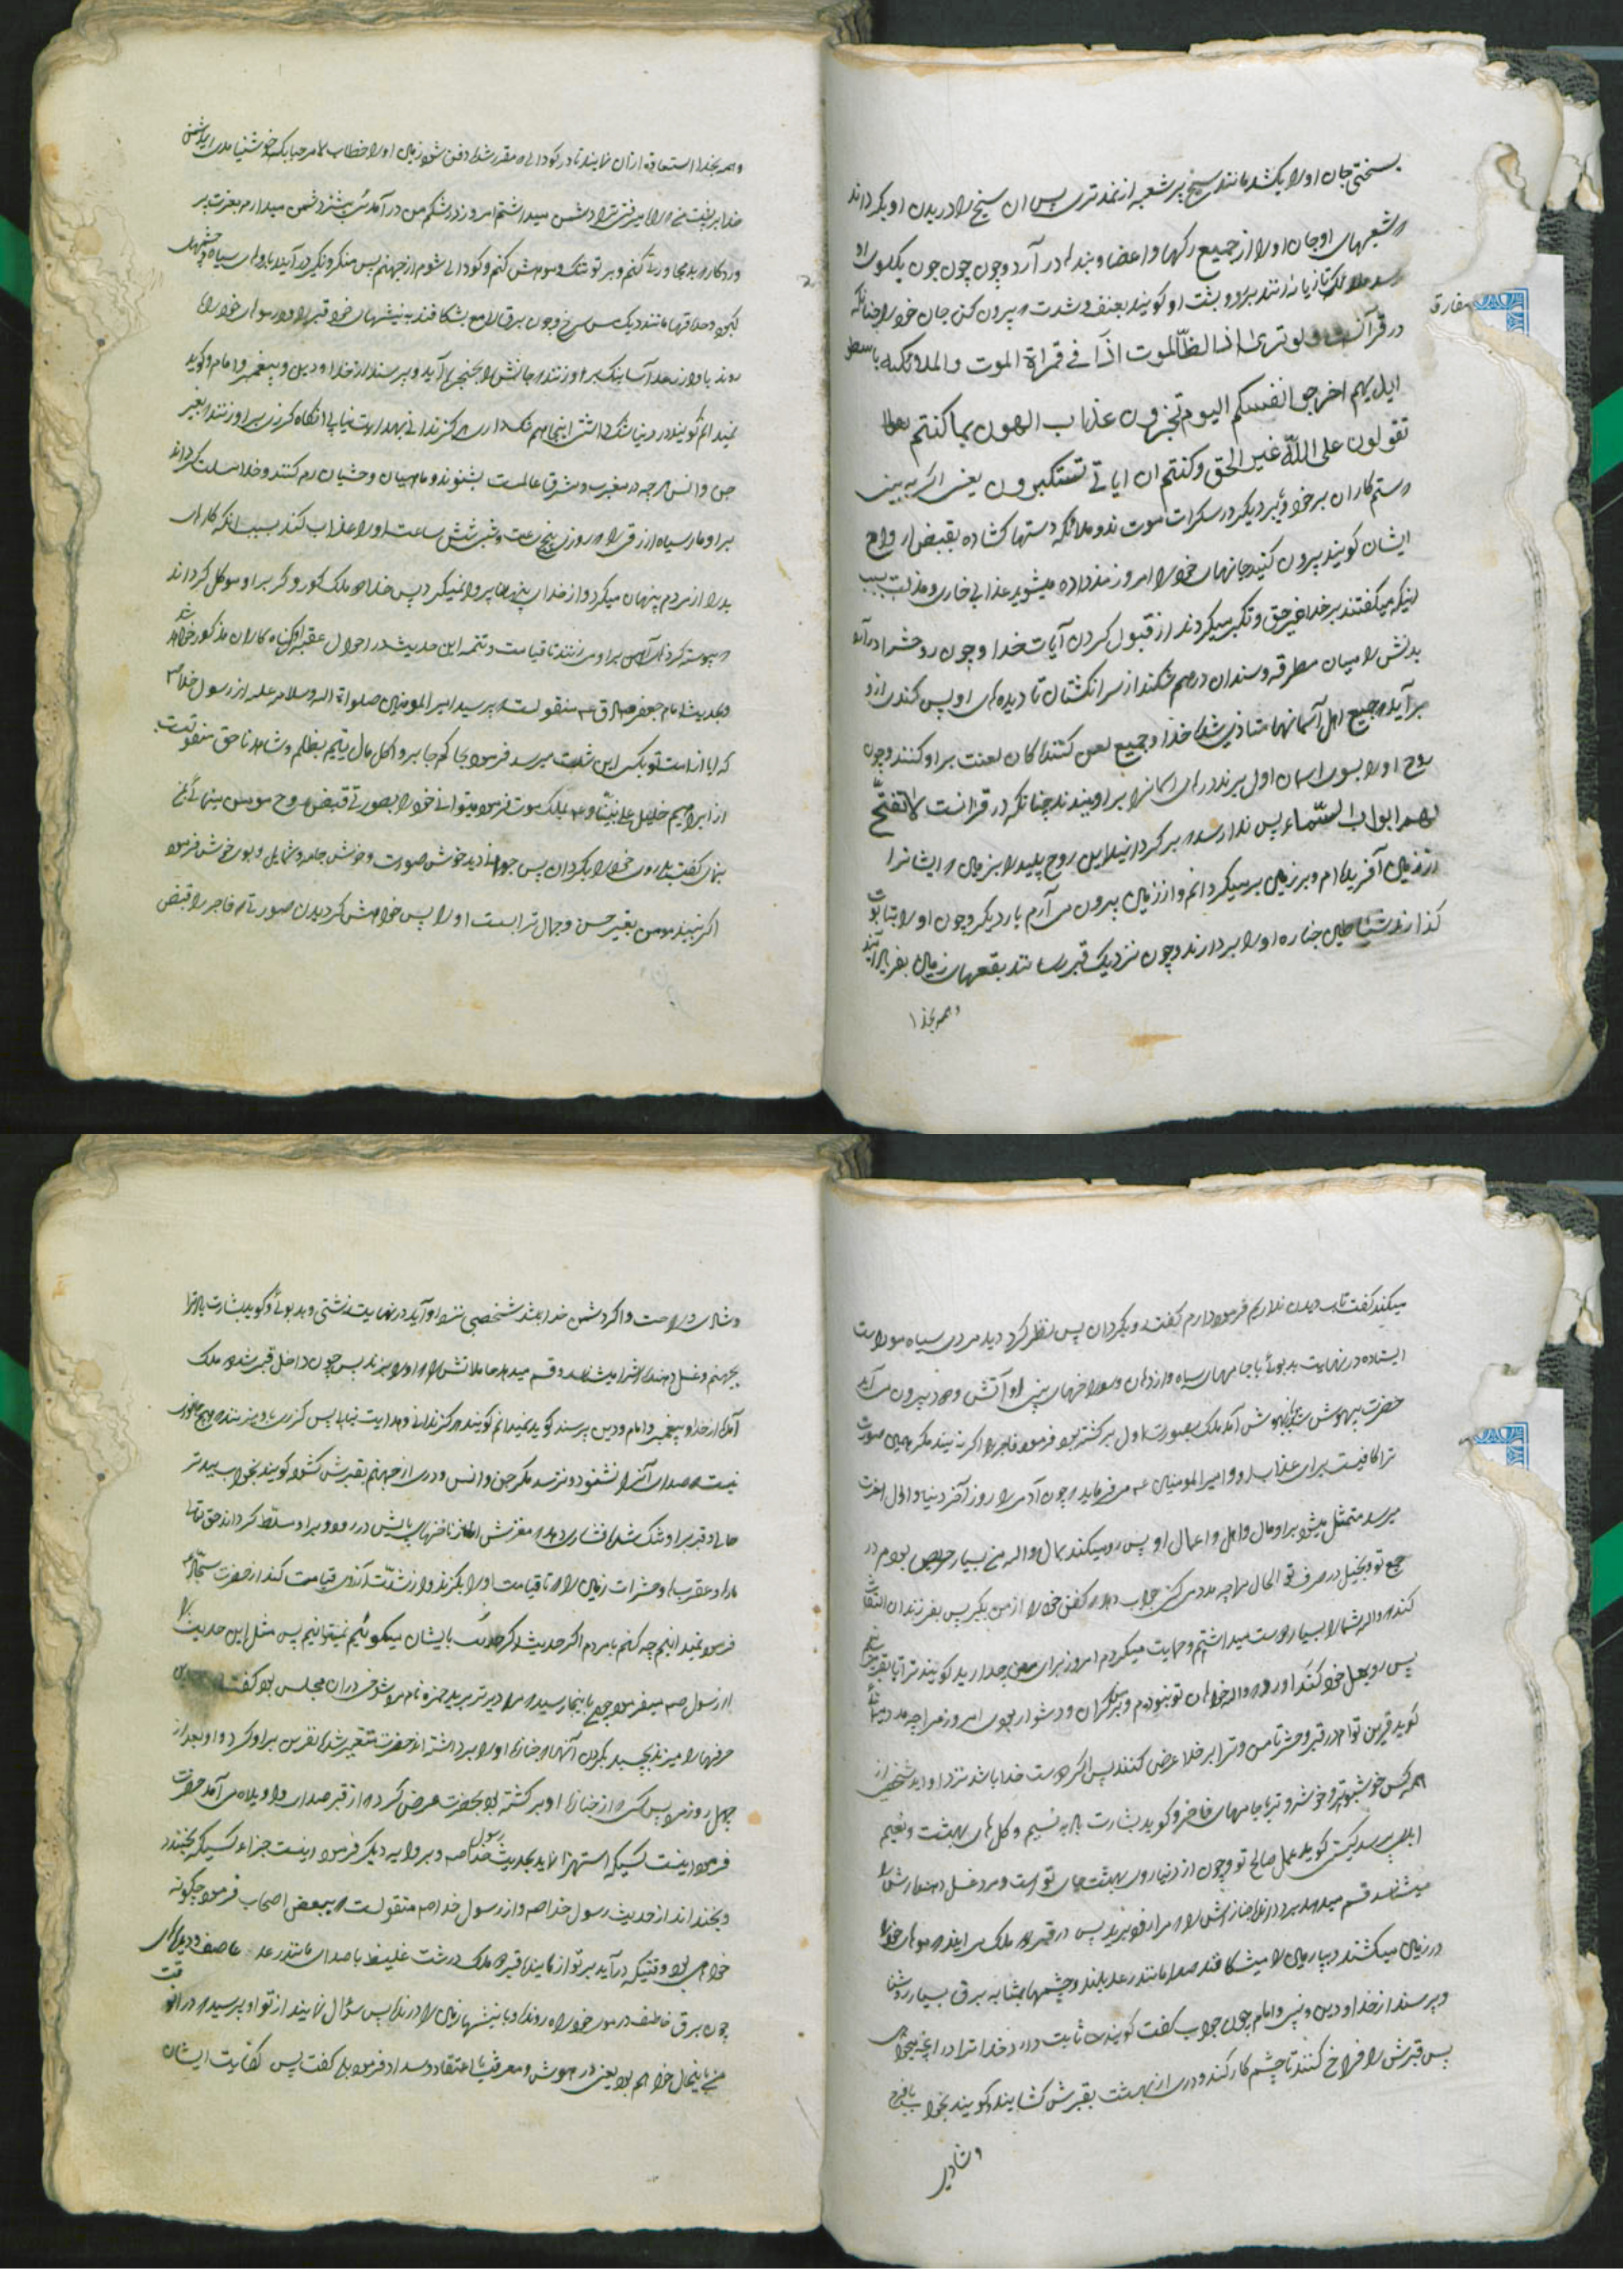 بسختی جان او را بکشد مانند سیخ پر شعبه از نمد تر پس ان سیخ را در بدن او بگرداند
و شعبهای او جان او را از جمیع رکها و اعضا و بندها در آرد و چون جون بکلوی او
رسد ملائکه تازیانه زنند برو و پشت او کویند بعنف و شدت بیرون کن جان خود را چنانکه
در قرآنست ولو تری اذ الظالموت اذا فی قمراة الموت والملائکه باسطو
ایدیهم اخرجو انفسکم الیوم تجزون عذاب الهون بما کنتم
تقولون علی الله غیر الحق وکنتم ان ایاتی تستکبرون یعنی اگر به بینی
ستم کاران بر خود و دیکر در سکرات موت ند و ملائکه دستها کشاده بقبض ارواح
ایشان کویند بیرون کنید جانهای خود را امروز مزد داده میشوید عذابی خاری و مذلت بسبب
اینکه میکفتند بر خدا غیر حق و تکبر میکردند از قبول کردن آیات خدا و چون روحش را در آرد
بدنش را میان مطرقه و سندان درهم شکند از سر انکشتان تا دیدهای او پس کندی ازو
بر آید که جمیع اهل آسمانها متاذی شده خدا و جمیع لعن کنندکان لعنت بر او کنند و چون
روح او را بسوی اسمان اول برند درهای اسمانرا بر او ببندند چنانکه در قرانست لا تفتح
لهم ابواب السماء پس ندا رسد که بر کردانید این روح پلید را بزمین که ایشانرا
از زمین آفریده ام و بر زمین بر میکردانم و از زمین بیرون می آرم بار دیکر و چون او را بتابوت
کذارند شیاطین جنازه او را بردارند و چون نزدیک قبر رسانند بقعهای زمین بفریاد آیند
و همه بخدا
مفارق
و همه بخدا استعاذه از ان نمایند تا در کودالی که مقرر شده دفن شود زمین او را خطاب لا مرحبا بک
خدا بر پشت من راه میرفتی ترا دشمن میداشتم امروز در شکم من در آمدی بیشتر دشمن میدارم بعزت
وردکار بدیها و رتنک کنم و بر تو تنک و موحش کنم و کودالی شوم از جهنم پس منکر و نکیر در آیند با روهای سیاه و چشمهای
کبود و حدقها مانند دیک مس سرخ و چون برق لامع بشکافند به نیشهای خود قبر او و موهای خود را
روند باواز رعد آسا بنک بر او زنند که جانش را بحنجر آید و پرسند از خدا و دین و پیغمبر و امام او کوید
نمیدانم کویند در دنیا شک داشتی اینجا هم شک داری هرکز ندانی و هدایت نیابی انکاه کرزی بر او زنند بغیر
جن و انس هرچه در مغرب و مشرق عالمست بشنوند و ماهیان و حشیان رم کنند و خدا مسلط کرداند
بر او مار سیاه ازرقی را که روزی پنج ساعت و شبی شش ساعت او را عذاب کند بسبب انکه کارهای
بد را از مردم پنهان میکرد و از خدای پنهان پروا نمیکرد پس خدا دو ملک کور و کر بر او موکل کرداند
پیوسته کرزهای آهن بر او می زنند تا قیامت و تتمه این حدیث در احوال عقبه کناه کاران مذکور خواهد شد
و بحدیث امام جعفر صادق ع منقولست که پرسید امیر المومنین صلوات الله وسلامه علیه از رسول خدا ص
که ایا از امت تو بکسی این شدت میرسد فرمود بحاکم جابر و اکل مال یتیم بظلم و شاهد ناحق منقولست
از ابراهیم خلیل علی نبینا و ع بملک موت فرمود میتوانی خود را بصورتی قبض روح مومن مینمائی بمن
بنمای کفت بلی روی خود را بگردان پس جوانی دید خوش صورت و خوش جامه و شمایل و بوی خوش فرمود
اکر نبیند مومن بغیر حسن و جمال ترا بست او را پس خواهش کردیدن صورتی که فاجر را قبض
میکند کفت تاب دیدن نداری فرمود دارم کفت رو بگردان پس نظر کرد دید مردی سیاه موراست
ایستاده در نهایت بدبوئی با جامهای سیاه و از دهان و سوراخهای بینی او آتش و دود بیرون می آید
حضرت بیهوش شد چون بهوش آمد ملک بصورت اول برکشته بود فرمود فاجر را اکر نه بیند مکر همین صورت
ترا کافیست برای عذاب او و امیر المومنین ع می فرماید که چون آدمی را روز آخر دنیا و اول اخرت
میرسد متمثل میشود بر او مال و اهل و اعمال او پس رو میکند بمال والله من بسیار حریص بودم در
جمع تو و بخیل در صرف تو الحال مرا چه مدد می کنی جواب دهد که کفن خود را از من بگیر پس بفرزندان التفات
کند که والله شما را بسیار دوست میداشتم و حمایت میکردم امروز برای من چه دارید کویند ترا تا بقبر
پس رو بعمل خود کند کوید که والله خواهان تو نبودم و بر من کران و دشوار بودی امروز مرا چه مدد
کوید قرین توام در قبر و حشر تا من و ترا بر خدا عرض کنند پس اکر دوست خدا باشد نزد او اید شخصی از
همه کس خوشبوتر و خوشروتر با جامهای فاخر و کوید بشارت باد به نسیم و کلهای بهشت و نعیم
ابدی پرسد کیستی کوید عمل صالح تو و چون از دنیا روی بهشت جای تو است و مرد غسل دهنده اش را
میشناسد قسم میدهد بردارنده جنازه اش را که مرا زود ببرید پس در قبر دو ملک می ایند که موهای خود را
در زمین میکشند و بپا زمین را میشکافند صدا مانند رعد بلند و چشمها بمشابه برق بسیار روشن
و پرسند از خدا و دین و نبی و امام چون جواب کفت کویند ثابت دارد خدا ترا در آنچه میخواهی
پس قبرش را فراخ کنند تا چشم کار کند و دری از بهشت بقبرش کشایند و کویند بخواب با فرح
و شادی
و شادی و راحت و اکر دشمن خدا باشد شخصی نزد او آید در نهایت زشتی و بدبوئی و کوید بشارت باد ترا
بجهنم و غسل دهنده اش را میشناسد و قسم میدهد حاملانش را که او را مبرند پس چون داخل قبر شد دو ملک
آمده از خدا و پیغمبر و امام و دین پرسند کوید نمیدانم کویند هرکز ندانی و هدایت نیابی پس کرزی باو میزنند که هیچ جانوری
نیست که صدای آنرا نشنود و نترسد مکر جن و انس و دری از جهنم بقبرش کشوده کویند بخواب ببدتر
حالی و قبر بر او تنک شده فشاری دهد که مغزش از ناخنهای پایش در رود و بر او مسلط کرداند حق تعالی
مارها و عقربها و حشرات زمین را که تا قیامت او را بگزند و از شدت آرزوی قیامت کند از حضرت سجاد ع
فرمود نمیدانیم چه کنم با مردم اکر حدیث ذکر حدیث بایشان میکوئیم نمیتوانیم پس مثل این حدیث
از رسول ص میفرمود چون باینجا رسید که مرا دیرتر برید حمزه نام مردی در ان مجلس بود کفت
حرفها را میزند بچسبد بکردن آنها که جنازه او را برداشته اند حضرت متغیر شده نفرین بر او کرد و او بعد از
چهل روز مرد پس کسی که از جنازه او برکشته بود بحضرت عرض کرد که از قبر صدای واویلا می آمد حضرت
فرمود اینست کسیکه استهزا نماید بحدیث رسول خدا ص و بروایه دیکر فرمود اینست جزاء کسیکه بخندد
و بخنداند از حدیث رسول خدا ص و از رسول خدا ص منقولست که ببعض اصحاب فرمود چگونه
خواهی بود وقتیکه درآید بر تو از نمایند قبر دو ملک درشت غلیظ با صدای مانند رعد عاصف و دیدهای
چون برق خاطف در موی خود راه روند و با نیشها زمین را درند پس سؤال نمایند از تو او پرسید که در انوقت
من باینحال خواهم بود یعنی در هوش و معرفت با اعتقاد و سداد فرمود بلی کفت پس کفایت ایشان